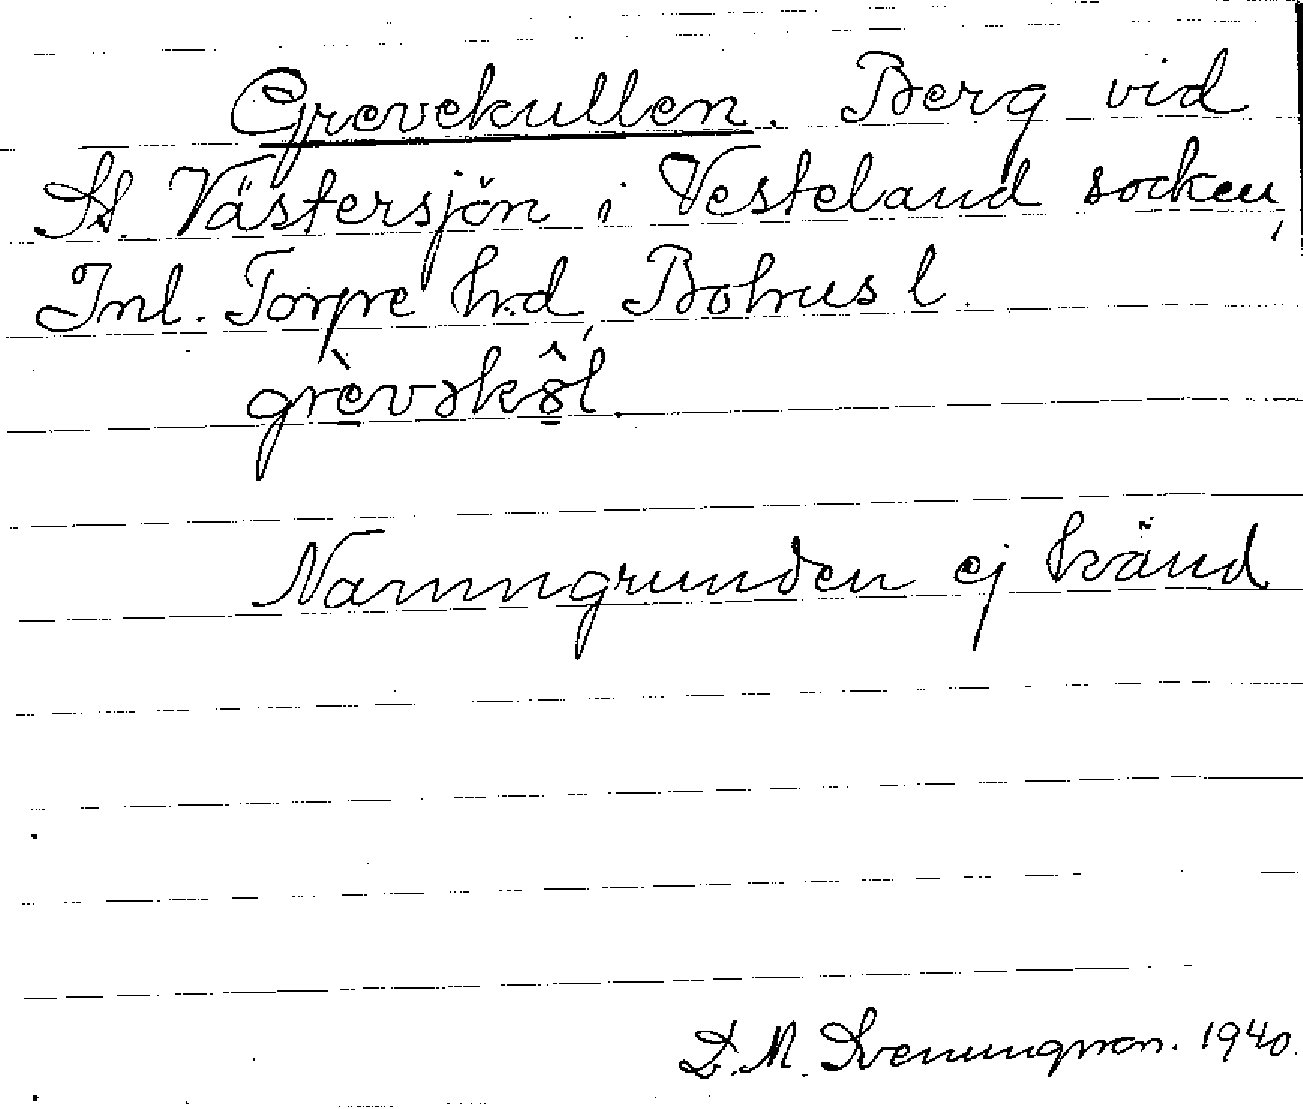 Grevekullen. Berg vid
St. Västersjön i Vesteland socken,
Inl. Torpe hrd, Bohusl.
grèvəkôl.
Namngrunden ej känd
D. M. Sveningsson. 1940.